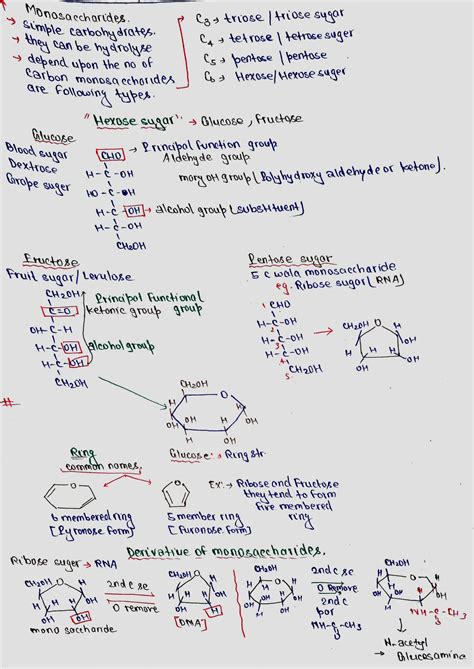 Monosaccharides.
→ simple carbohydrates.
→ they can be hydrolyse
→ depend upon the no of
carbon monosaccharides
are following types.
C3 → triose / triose sugar
C4 → tetrose / tetrose suger
C5 → pentose / pentose
C6 → Hexose/Hexose suger
"Hexose sugar" → Glucose, Fructose
Glucose
Blood sugar
Dextrose
Grape suger
CHO → Principal function group
Aldehyde group
many OH group (Polyhydroxy aldehyde or ketone).
H-C-OH
HO-C-OH
H-C-OH → alcohol group (substituent)
H-C-OH
CH2OH
Fructose
Fruit sugar/Levulose
CH2OH
C=O
OH-C-H
H-C-OH
H-C-OH
CH2OH
Principal Functional
ketonic group group
alcohol group
Pentose sugar
5 C wala monosaccharide
eg. Ribose sugar (RNA)
1 CHO
H-C-OH
2
H-C-OH
3
H-C-OH
4
CH2OH
5
CH2OH
O
OH
H
H
OH
OH
#
CH2OH
O
H
H
OH
OH
H
OH
Glucose → Ring str.
Ring
common names.
O
O
6 membered ring
[Pyranose form]
5 member ring
[Furanose form]
Ex: → Ribose and Fructose
they tend to form
five membered
ring
Derivative of monosaccharides.
Ribose suger → RNA
CH2OH
O
OH
H
H
OH
OH
mono saccharide
2nd C se
O remove
CH2OH
O
OH
H
H
OH
H
[DNA]
CH2OH
O
OH
OH
OH
OH
2nd C se
O remove
2nd C
por
NH-C-CH3
O
CH2OH
O
OH
OH
OH
NH-C-CH3
O
N-acetyl
Glucosamine